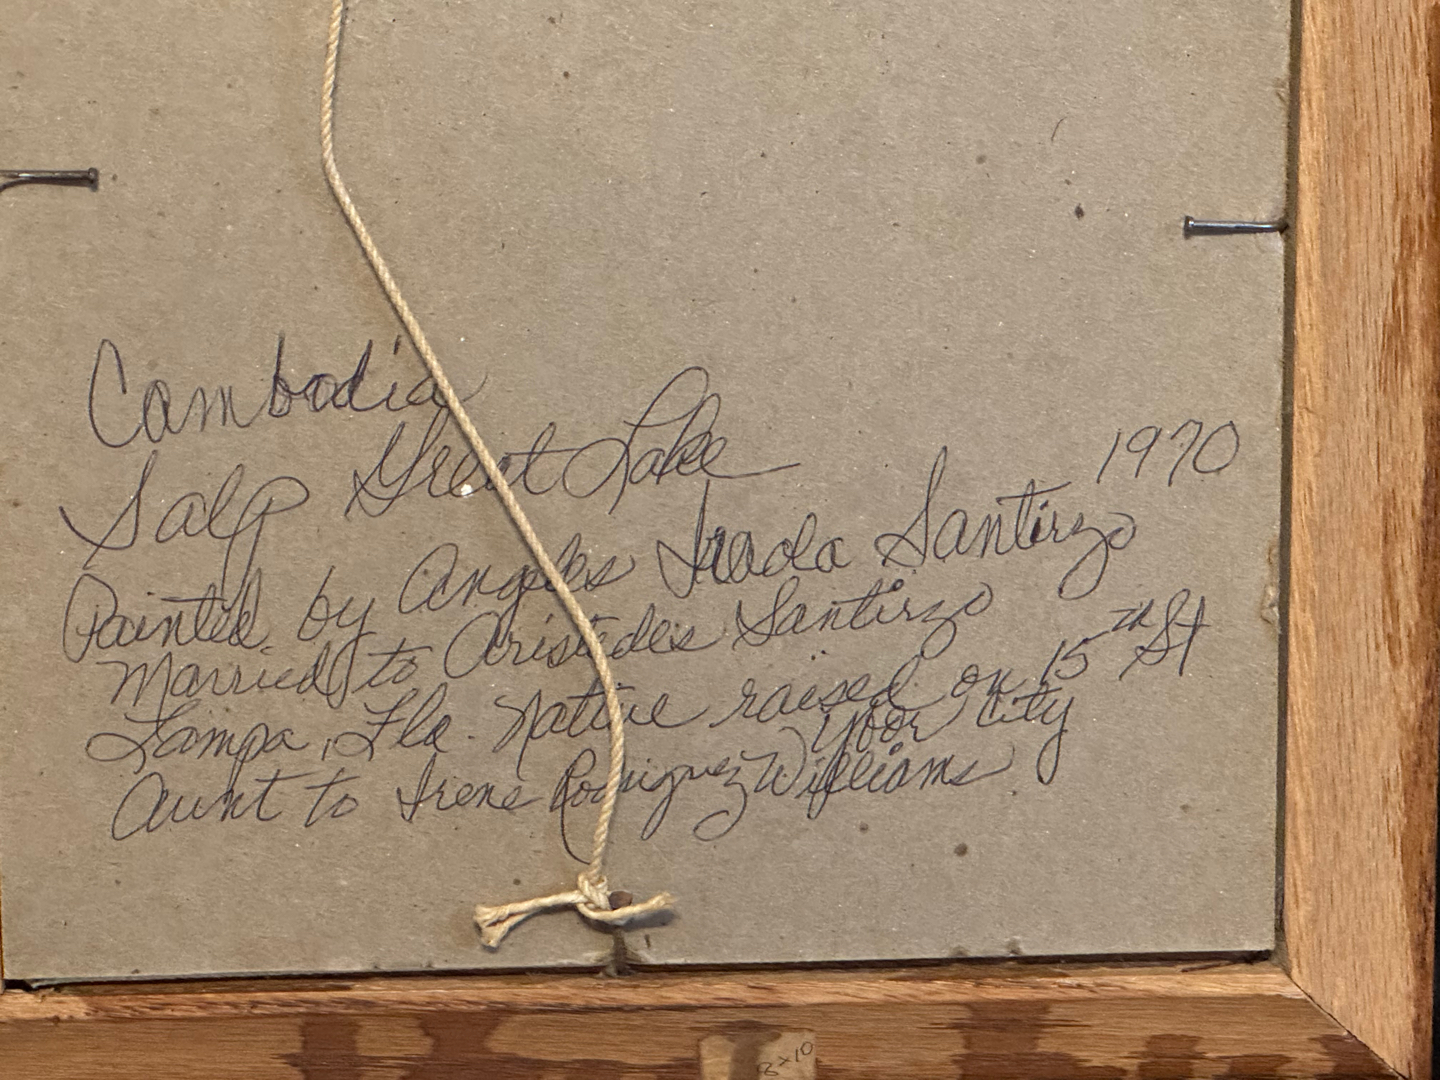 Cambodia
Great Lake
1970
Painted by Angeles Santirzo
Married to Aristedes Santirzo
Tampa, Fla. Native raised on 15th St
Ybor City
Aunt to Irene Rodriguez Williams
8x10